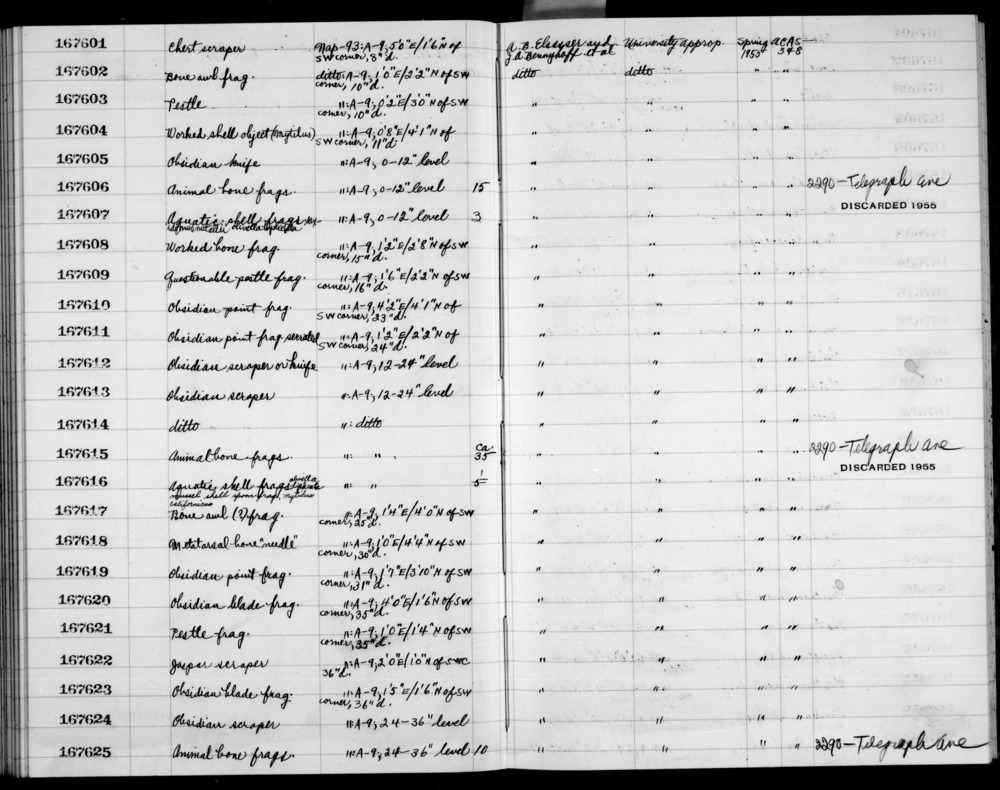 167601 Chert scraper Nap-93: A-9, 5'0"E/1'6"N of SW corner, 8"d. A. B. Elsasser and J. A. Bennyhoff et al University approp. Spring 1955 ACAS 348
167602 Bone awl frag. ditto: A-9, 1'0"E/2'2"N of SW corner, 10"d. ditto ditto " " "
167603 Pestle ": A-9, 0'2"E/3'0"N of SW corner, 10"d. " " " " "
167604 Worked shell object (Mytilus) ": A-9, 0'8"E/4'1"N of SW corner, 11"d " " " " "
167605 Obsidian knife ": A-9, 0-12" level " " " " "
167606 Animal bone frags. ": A-9, 0-12" level 15 " " " " " 2290-Telegraph Ave
DISCARDED 1955
167607 Aquatic shell frags ": A-9, 0-12" level 3 " " " " "
167608 Worked bone frag. ": A-9, 1'2"E/2'8"N of SW corner, 15"d. " " " " "
167609 Questionable pestle frag. ": A-9, 1'6"E/2'2"N of SW corner, 16"d. " " " " "
167610 Obsidian point frag. ": A-9, 4'2"E/4'1"N of SW corner, 23"d. " " " " "
167611 Obsidian point frag. serrated ": A-9, 1'2"E/2'2"N of SW corner, 24"d. " " " " "
167612 Obsidian scraper or knife ": A-9, 12-24" level " " " " "
167613 Obsidian scraper ": A-9, 12-24" level " " " " "
167614 ditto ": ditto " " " " "
167615 Animal bone frags. ": " . ca. 35 " " " " " 2290-Telegraph Ave
DISCARDED 1955
167616 Aquatic shell frags olivella biplicata ": " 1/5 " " " " "
mussel shell spoon frag, mytilus californicus
167617 Bone awl (?) frag. ": A-9, 1'4"E/4'0"N of SW corner, 25"d. " " " " "
167618 Metatarsal bone "needle" ": A-9, 1'0"E/4'4"N of SW corner, 30"d. " " " " "
167619 Obsidian point frag. ": A-9, 1'7"E/3'10"N of SW corner, 31"d. " " " " "
167620 Obsidian blade frag. ": A-9, 4'0"E/1'6"N of SW corner, 35"d. " " " " "
167621 Pestle frag. ": A-9, 1'0"E/1'4"N of SW corner, 35"d. " " " " "
167622 Jaspar scraper ": A-9, 2'0"E/1'0"N of SWC 36"d. " " " " "
167623 Obsidian blade frag. ": A-9, 1'5"E/1'6"N of SW corner, 36"d. " " " " "
167624 Obsidian scraper ": A-9, 24-36" level " " " " "
167625 Animal bone frags. ": A-9, 24-36" level 10 " " " " " 2290-Telegraph Ave